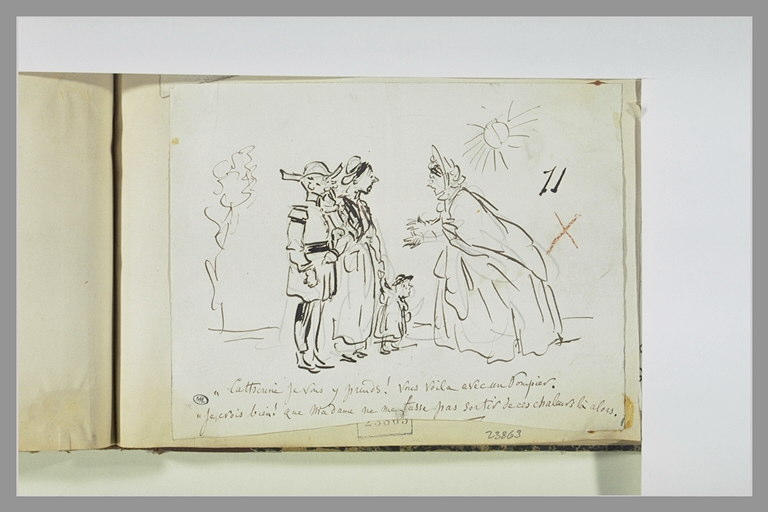 11
" Catherine je vous y prends! Vous voila avec un Pompier.
" Je crois bien! que Madame ne me fasse pas sortir de ces chaleurs là alors.
23863
23863